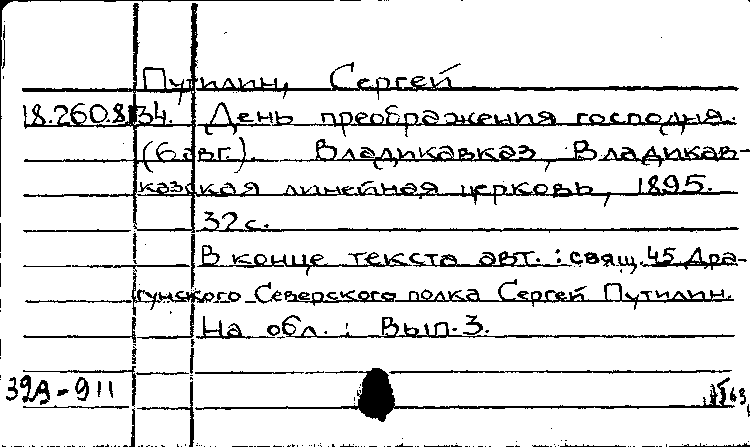 Путилин, Сергей
18.260.8.134. День преображения господня.
(6 авг.). Владикавказ, Владикав-
казская линейная церковь, 1895.
32 с.
В конце текста авт.: свящ. 45 Дра-
гунского Северского полка Сергей Путилин.
На обл.: Вып. 3.
39А-911